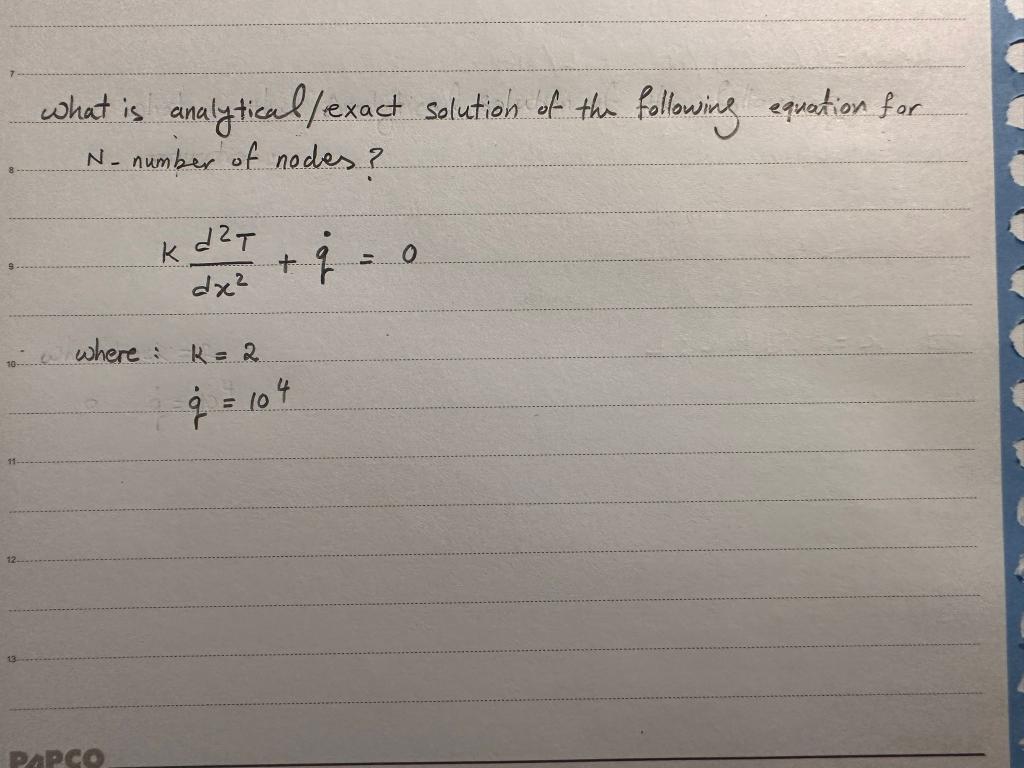 7
What is analytical/exact solution of the following equation for
N- number of nodes?
8
K d²T/dx² + q̇ = 0
9
where: K = 2
10
q̇ = 10⁴
11
12
13
PAPCO